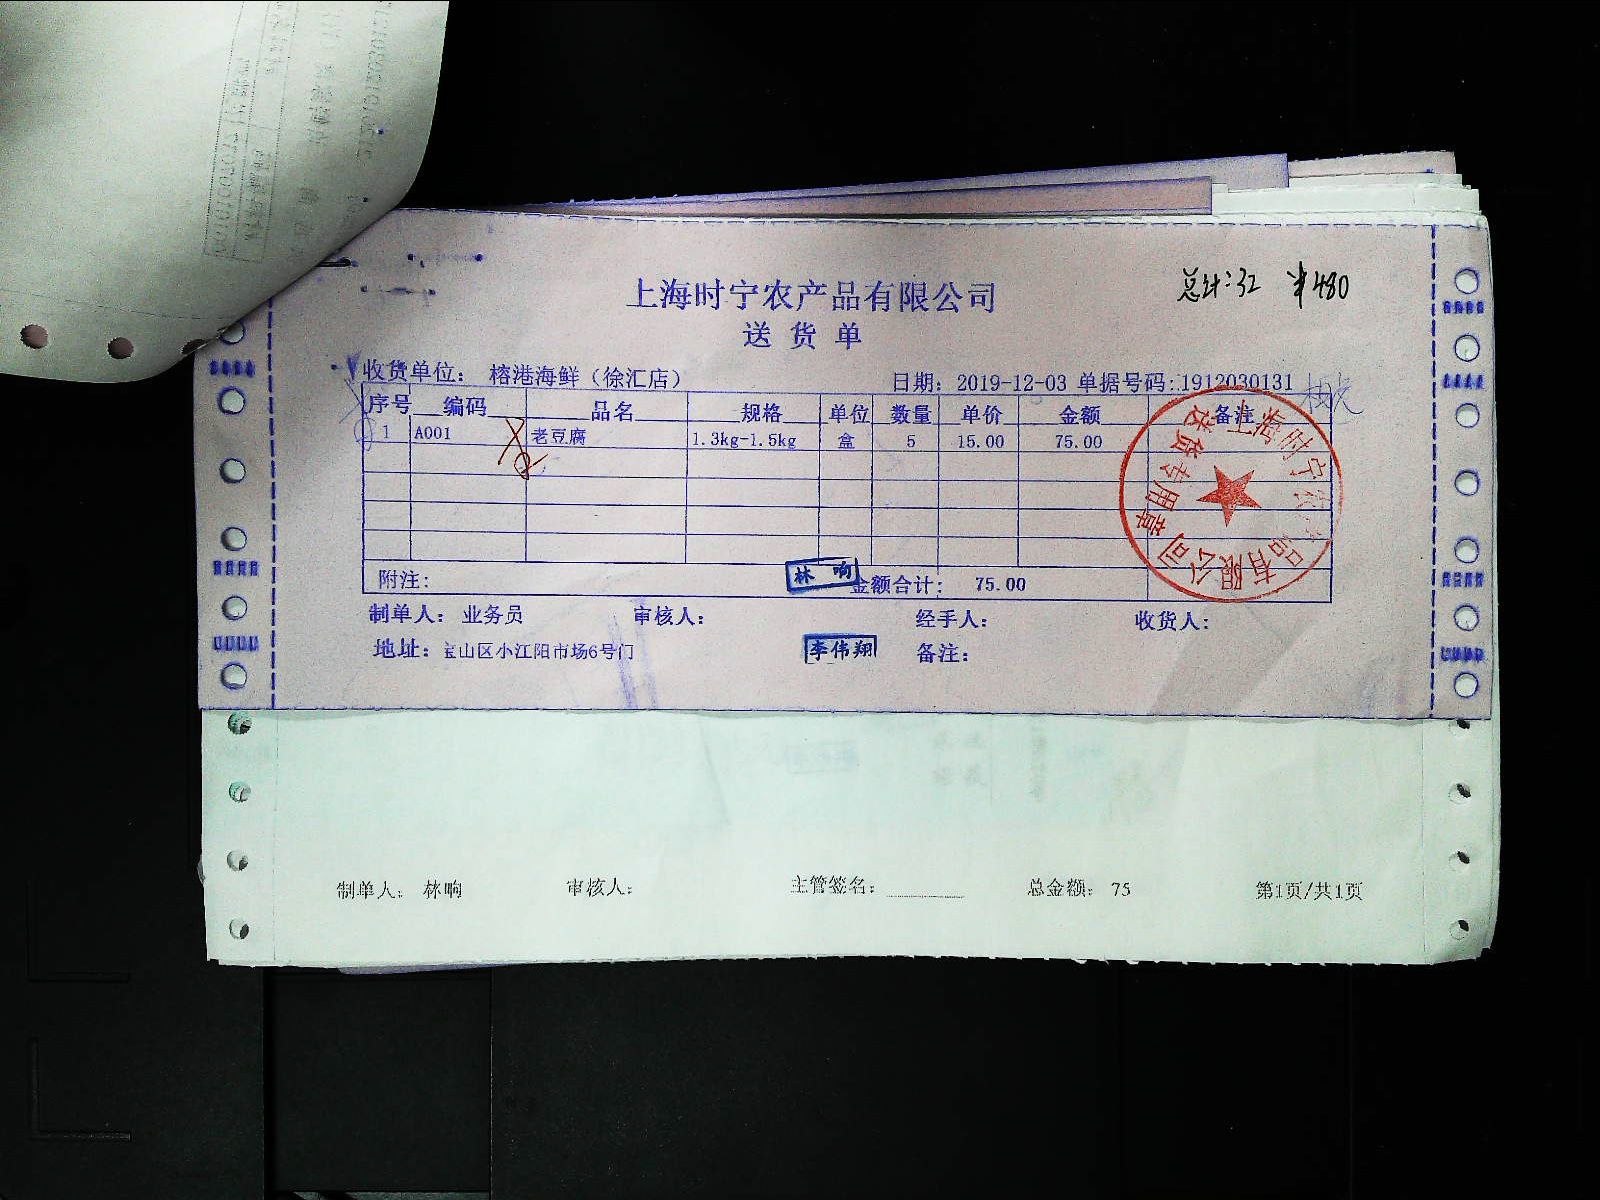 上海时宁农产品有限公司
总计:32 ¥480
送货单
收货单位: 榕港海鲜(徐汇店) 日期: 2019-12-03 单据号码:1912030131
序号 编码 品名 规格 单位 数量 单价 金额 备注
1 A001 老豆腐 1.3kg-1.5kg 盒 5 15.00 75.00
上海时宁农产品有限公司
送货专用章
附注: 林响 金额合计: 75.00
制单人: 业务员 审核人: 经手人: 收货人:
地址: 宝山区小江阳市场6号门 李伟翔 备注:
制单人: 林响 审核人: 主管签名: 总金额: 75 第1页/共1页